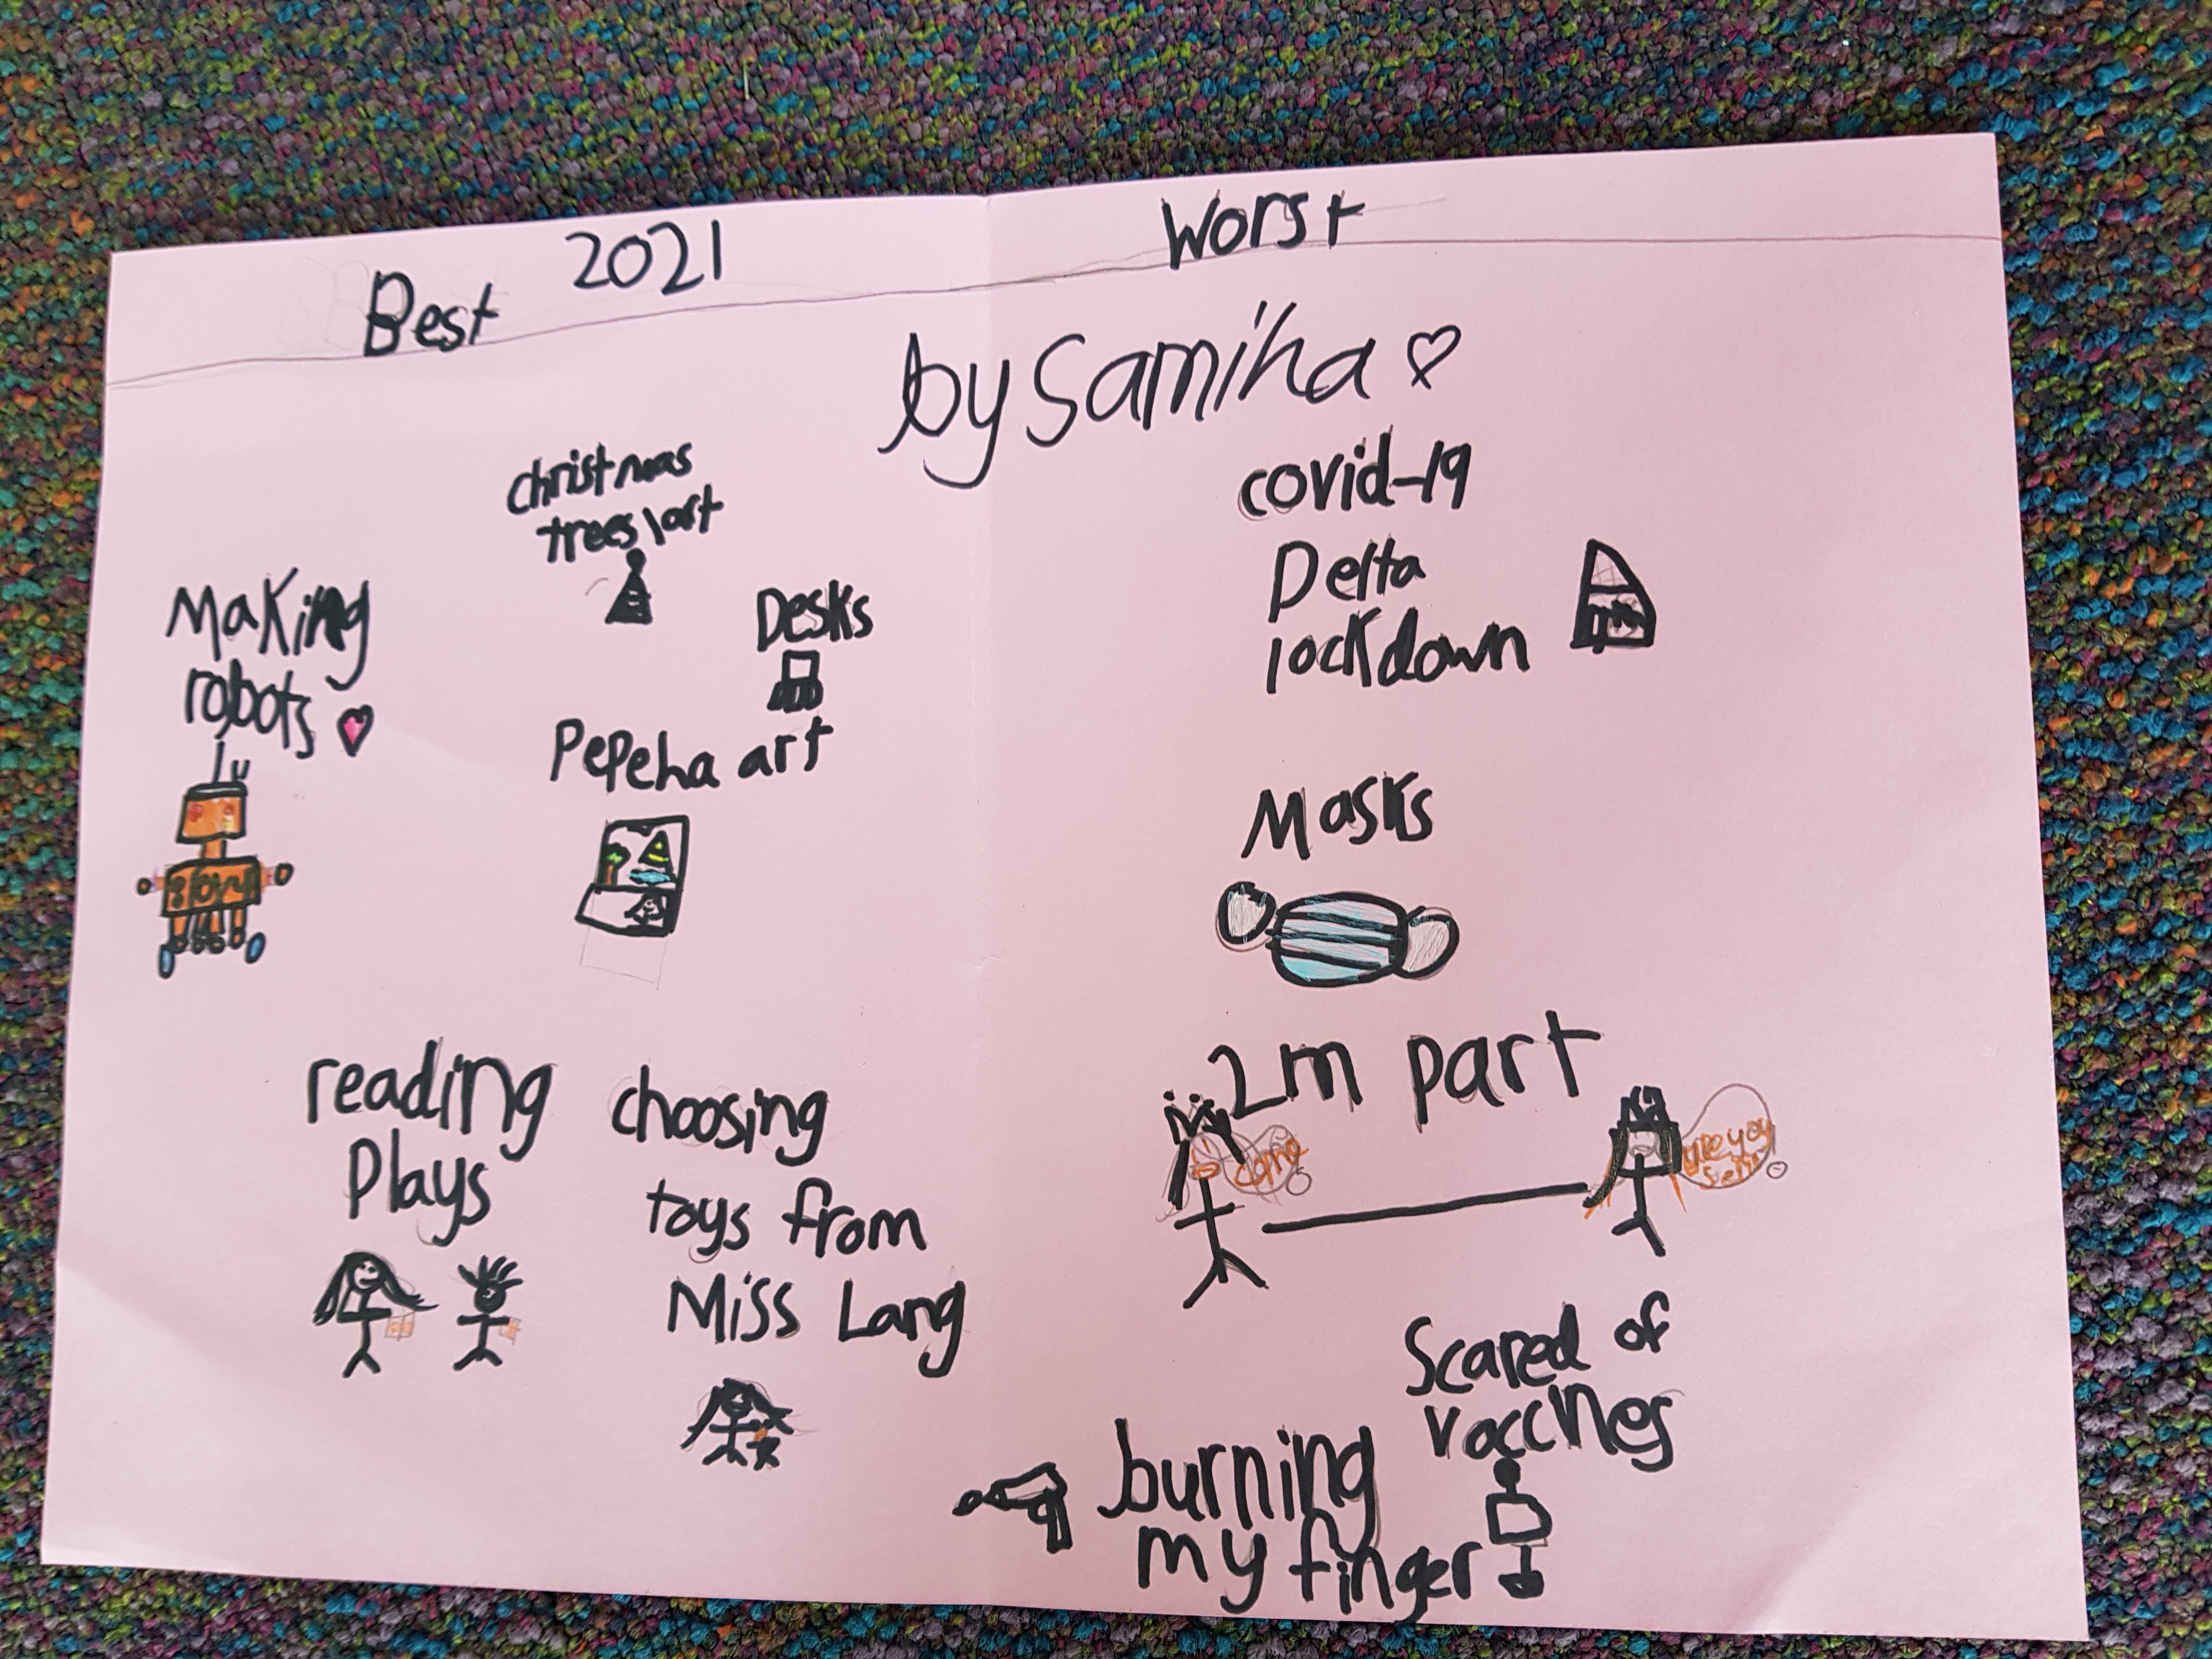 Best 2021 Worst
by Samiha
christmas
trees\art
Making
robots
Desks
Pepeha art
reading
Plays
choosing
toys from
Miss Lang
covid-19
Delta
lockdown
Masks
2m part
are you
Scared of
vaccines
burning
my finger